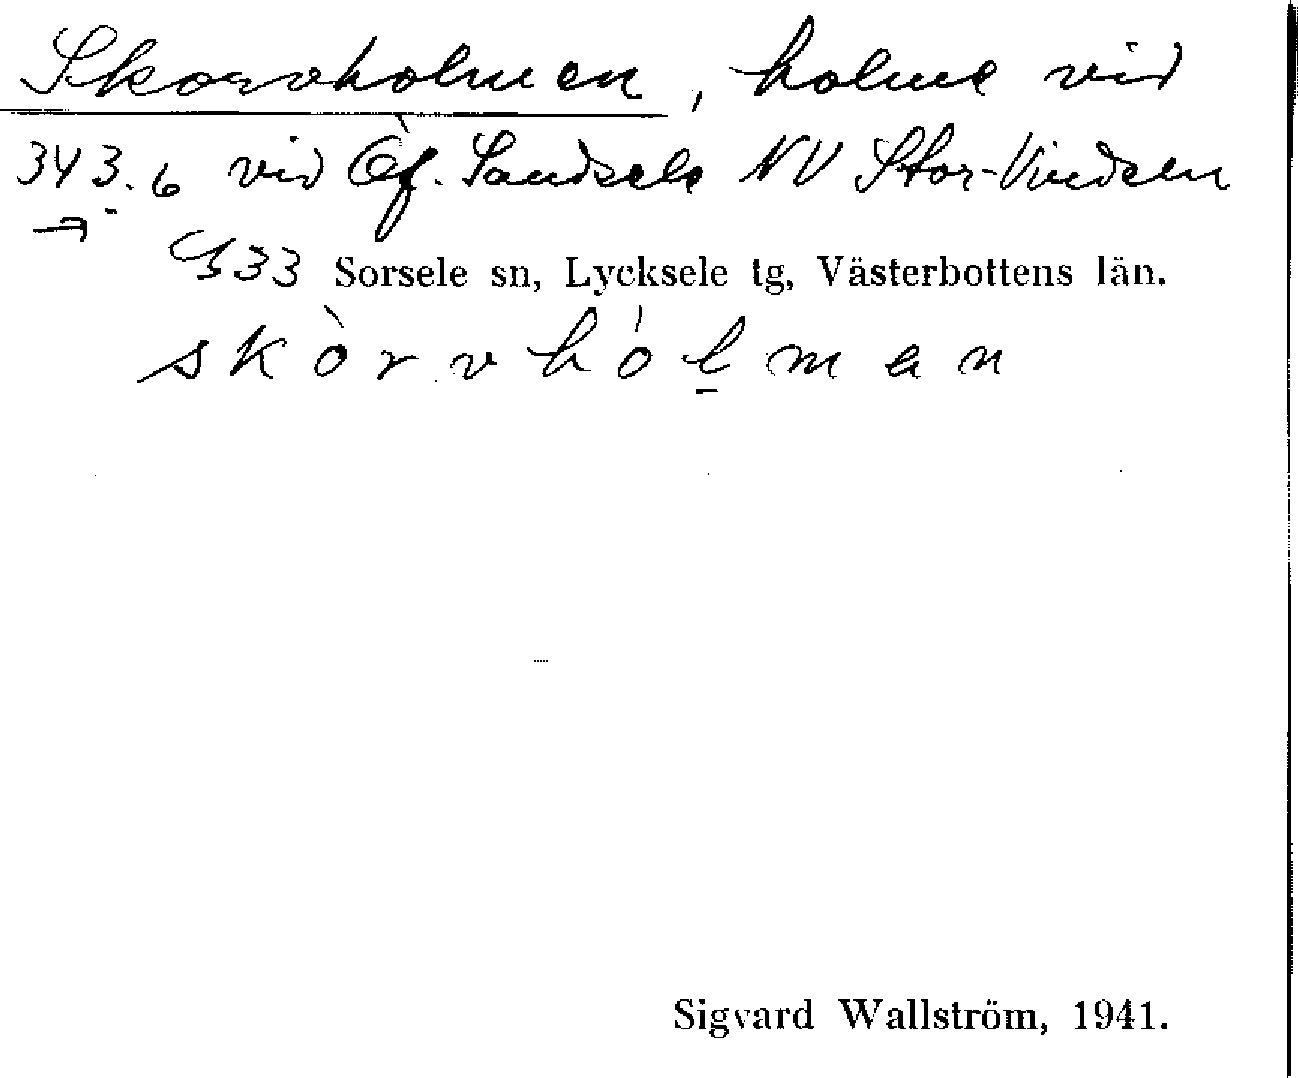 Skorvholmen, holme vid
343.6 vid Öf. Sandsele NV Stor-Vindeln
533 Sorsele sn, Lycksele tg, Västerbottens län.
skòrvhólman
Sigvard Wallström, 1941.